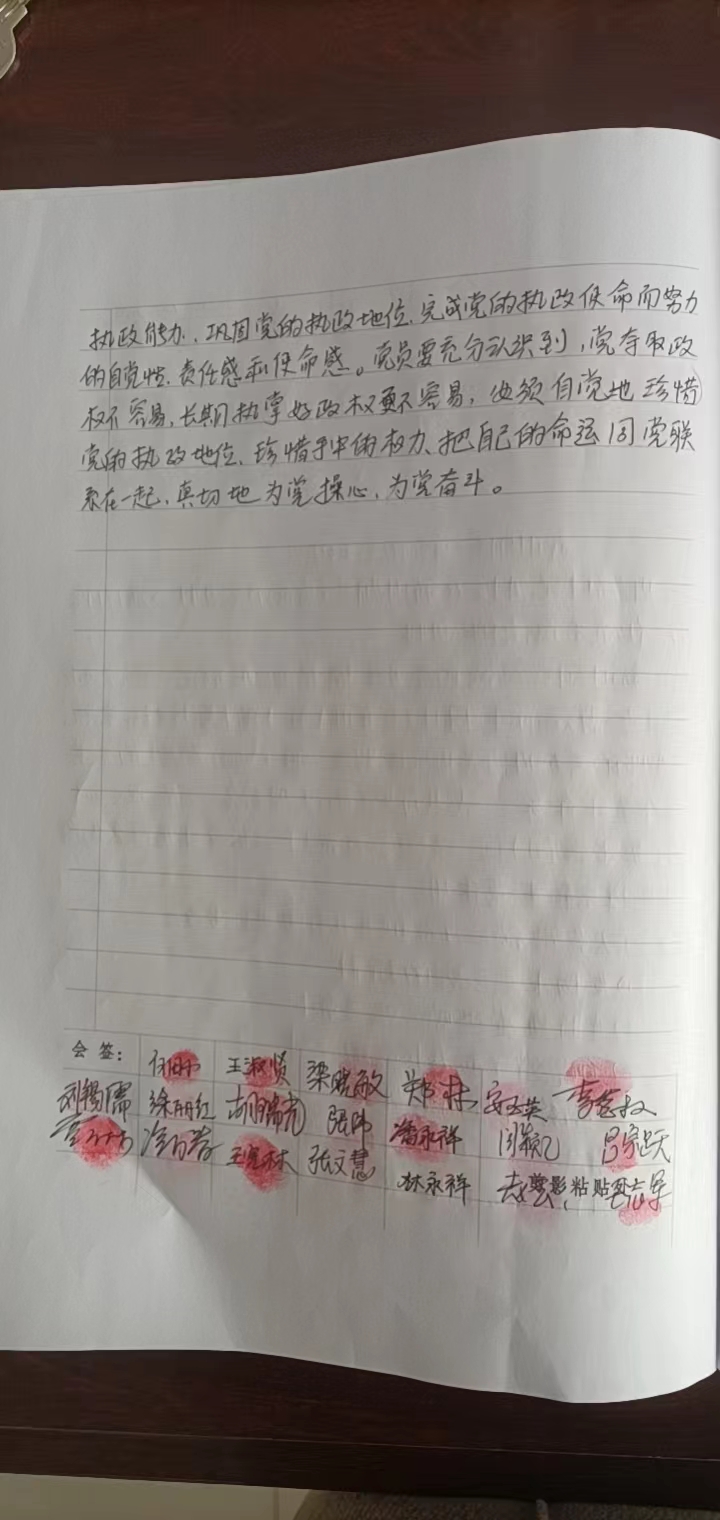 执政能力、巩固党的执政地位、完成党的执政使命而努力
的自觉性、责任感和使命感。党员要充分认识到，党夺取政
权不容易，长期执掌好政权更不容易，必须自觉地珍惜
党的执政地位、珍惜手中的权力、把自己的命运同党联
系在一起，真切地为党操心，为党奋斗。
会签： 王淑贤 梁晓敏 郑林
刘锡儒 徐丽红 张伟 潘永祥 吕家跃
王克林 张文慧 林永祥 剪影粘贴